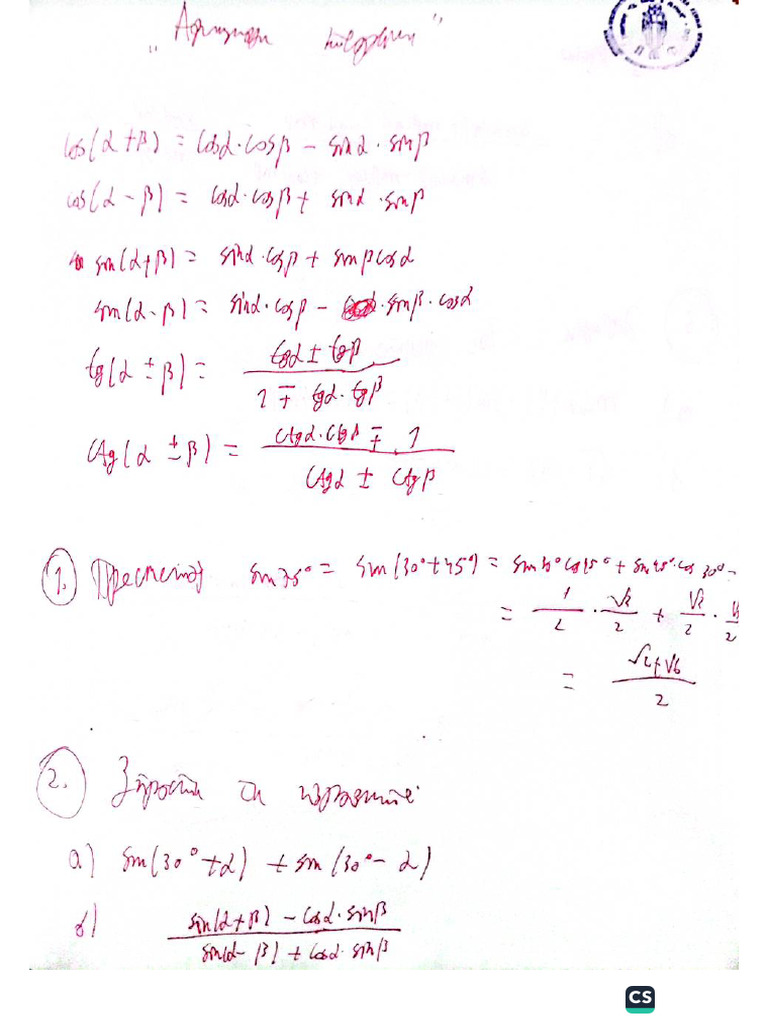 "Адициони теореми"
cos(α+β) = cosα·cosβ − sinα·sinβ
cos(α−β) = cosα·cosβ + sinα·sinβ
sin(α+β) = sinα·cosβ + sinβcosα
sin(α−β) = sinα·cosβ − sinβ·cosα
tg(α±β) = (tgα ± tgβ)/(1 ∓ tgα·tgβ)
ctg(α±β) = (ctgα·ctgβ ∓ 1)/(ctgα ± ctgβ)
1. Пресметај sin75° = sin(30°+45°) = sin30°cos45° + sin45°·cos30° =
= 1/2 · √2/2 + √2/2 · √3/2
= (√2+√6)/2
2. Упрости ги изразите:
а) sin(30°+α) + sin(30°−α)
б) (sin(α+β) − cosα·sinβ)/(sin(α−β) + cosα·sinβ)
CS